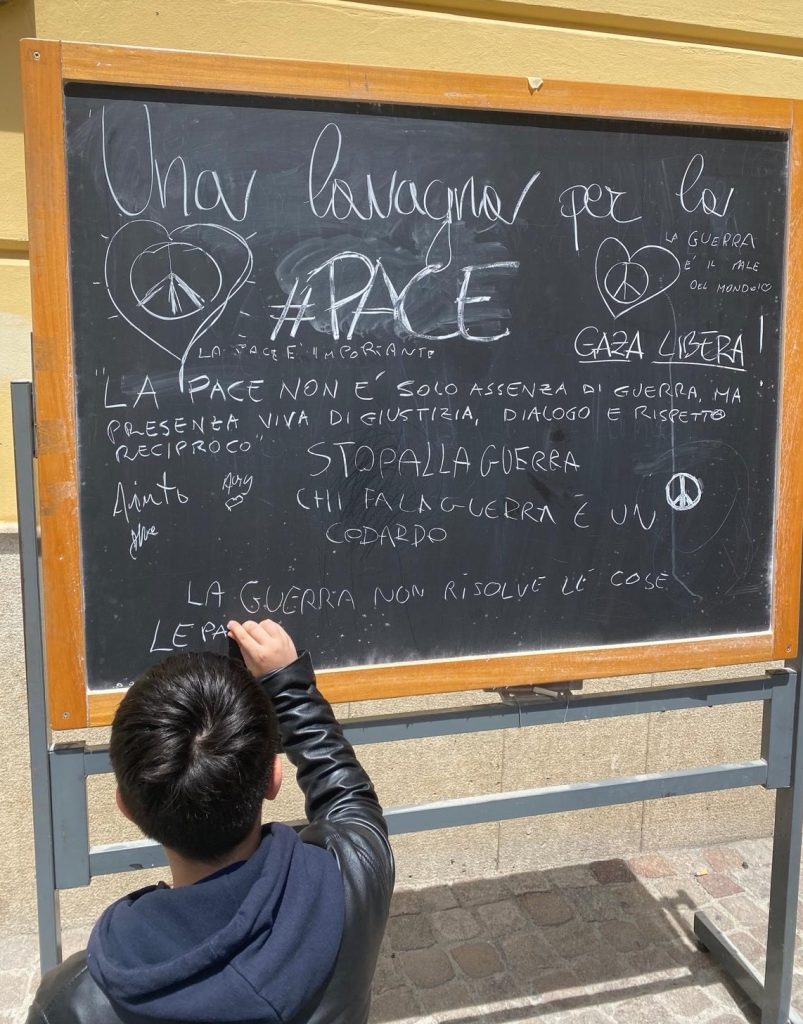 Una lavagna per la
#PACE
LA GUERRA
È IL MALE
DEL MONDO!
LA PACE E' IMPORTANTE
GAZA LIBERA!
"LA PACE NON E' SOLO ASSENZA DI GUERRA, MA
PRESENZA VIVA DI GIUSTIZIA, DIALOGO E RISPETTO
RECIPROCO"
STOP ALLA GUERRA
Aiuto
CHI FA LA GUERRA È UN
CODARDO
LA GUERRA NON RISOLVE LE COSE
LE PA